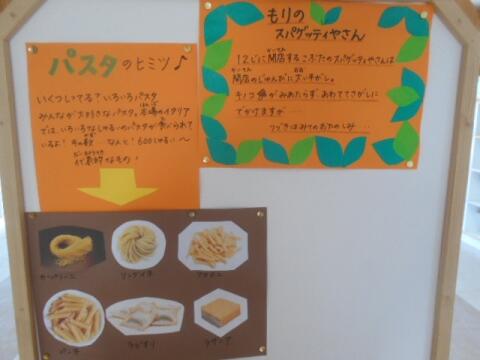 パスタのヒミツ♪
いくつしてる?いろいろパスタ
みんなが大好きなパスタ。本場のイタリア
では、いろいろなしゅるいのパスタが食べられて
いるよ! その数 なんと! 600しゅるい〜
代表的なもの!
もりの
スパゲッティやさん
12じに開店するこぶたのスパゲッティやさんは
かいてん
開店のじゅんびに大いそがし。
キノコ がみあたらず、あわててさがしに
でかけますが……
つづきはみてのおたのしみ…
カッペリーニ
リングイネ
ペンネ
ラビオリ
ラザニア